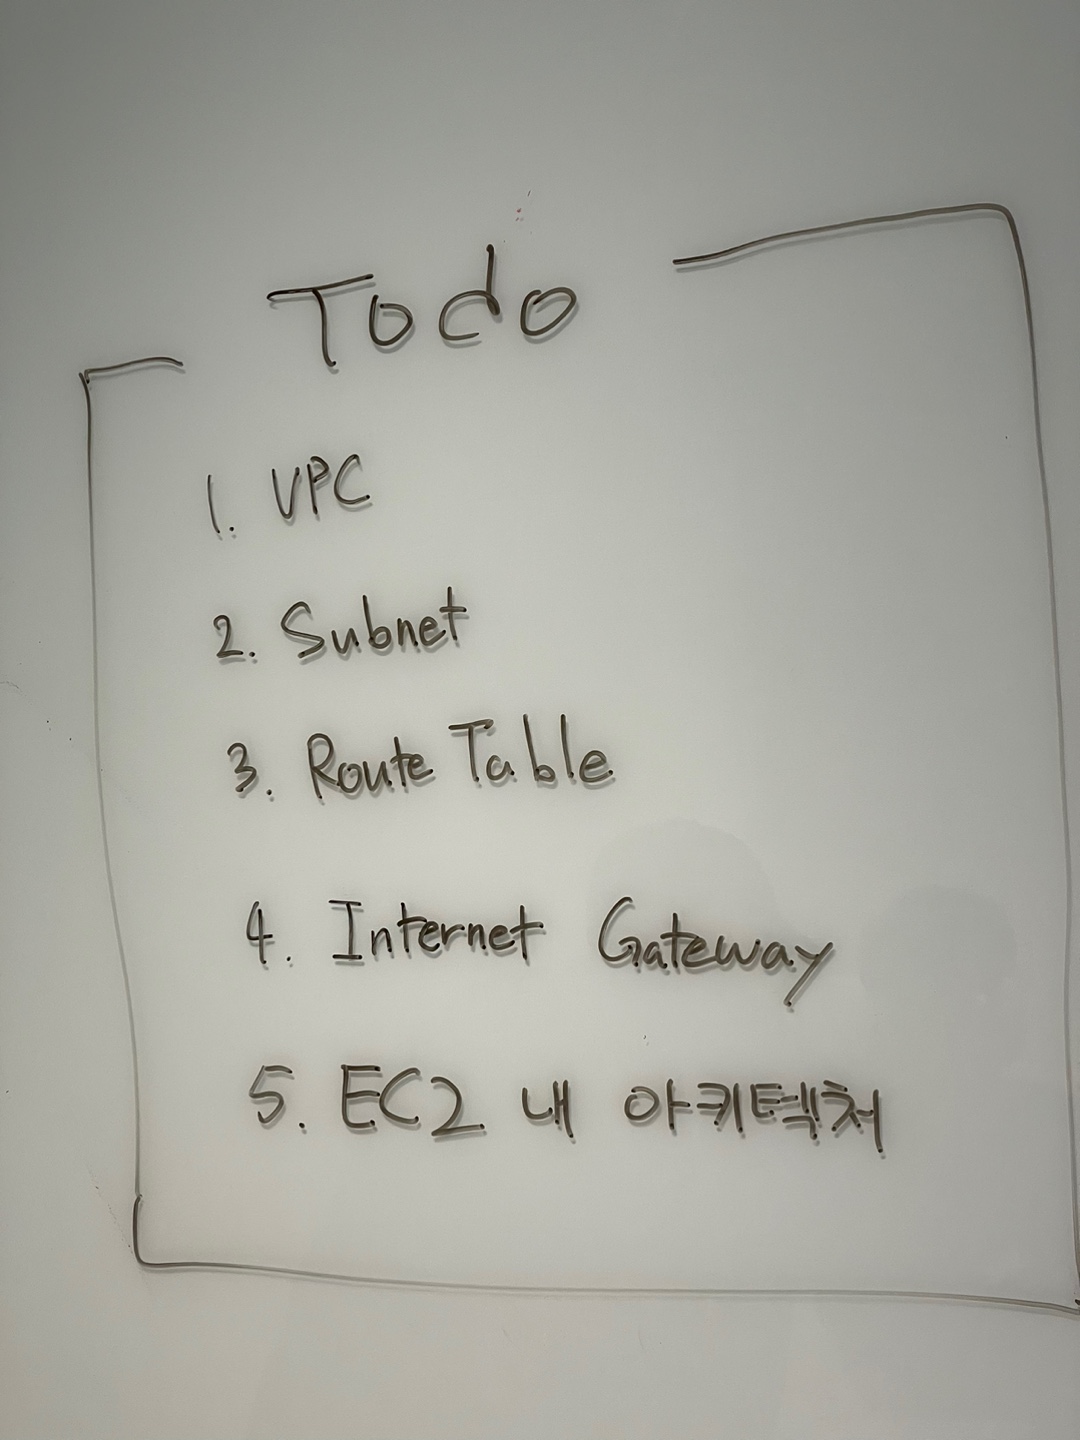 Todo
1. VPC
2. Subnet
3. Route Table
4. Internet Gateway
5. EC2 내 아키텍처